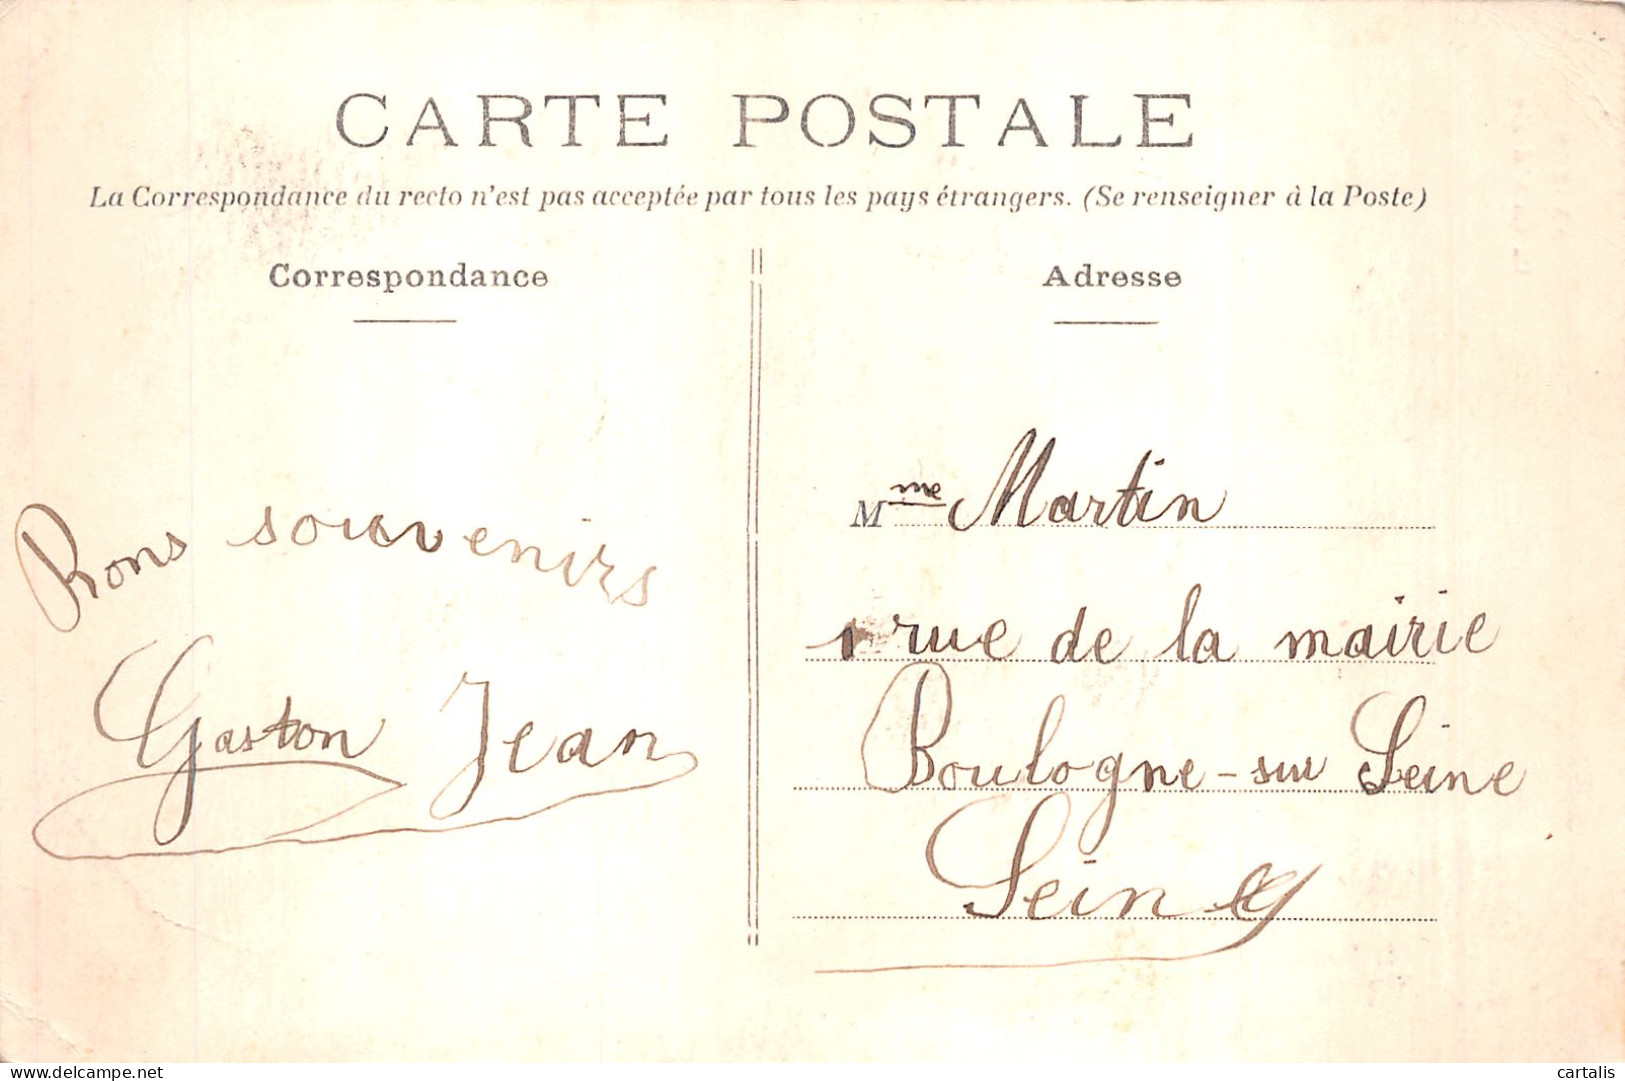 CARTE POSTALE
La Correspondance du recto n'est pas acceptée par tous les pays étrangers. (Se renseigner à la Poste)
Correspondance
Bons souvenirs
Gaston Jean
Adresse
Mme Martin
1 rue de la mairie
Boulogne-sur Seine
Seine
www.delcampe.net
cartalis